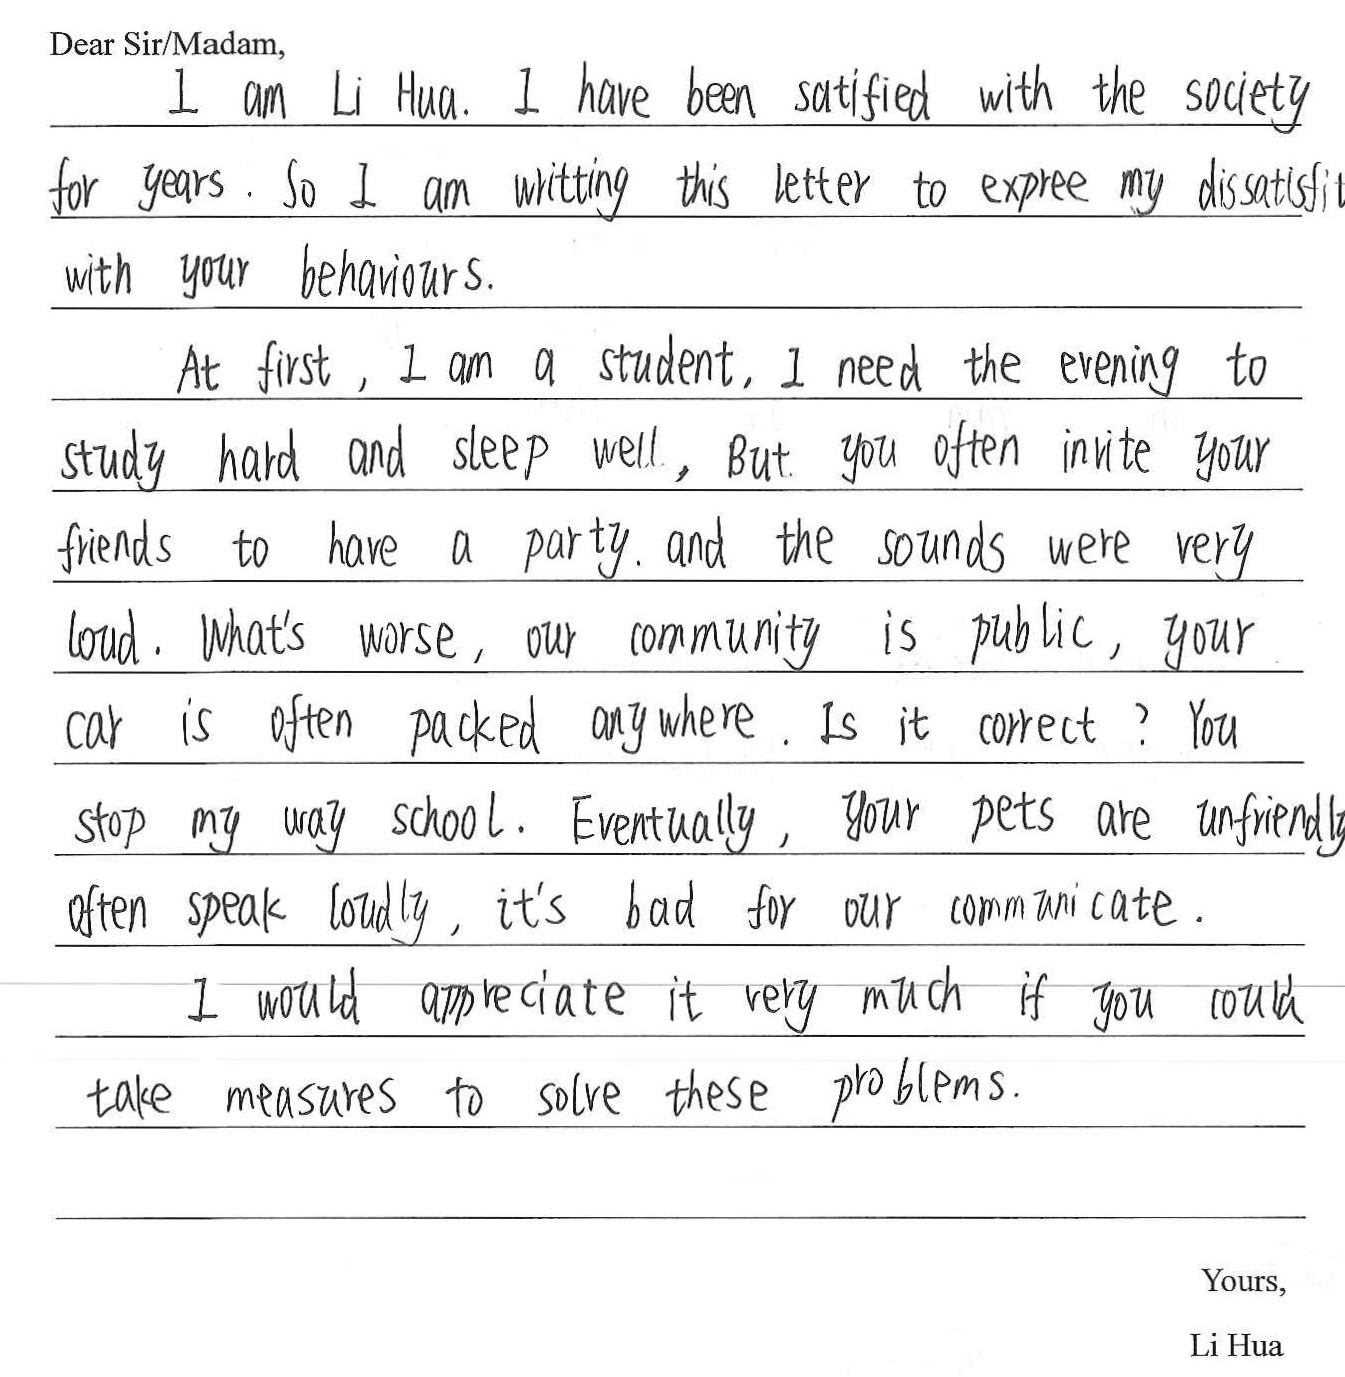 Dear Sir/Madam,
I am Li Hua. I have been satified with the society
for years. So I am writting this letter to expree my dissatisfit
with your behaviours.
At first, I am a student, I need the evening to
study hard and sleep well, But you often invite your
friends to have a party. and the sounds were very
loud. What's worse, our community is public, your
car is often packed anywhere. Is it correct? You
stop my way school. Eventually, your pets are unfriendly
often speak loudly, it's bad for our communicate.
I would appreciate it very much if you could
take measures to solve these problems.
Yours,
Li Hua